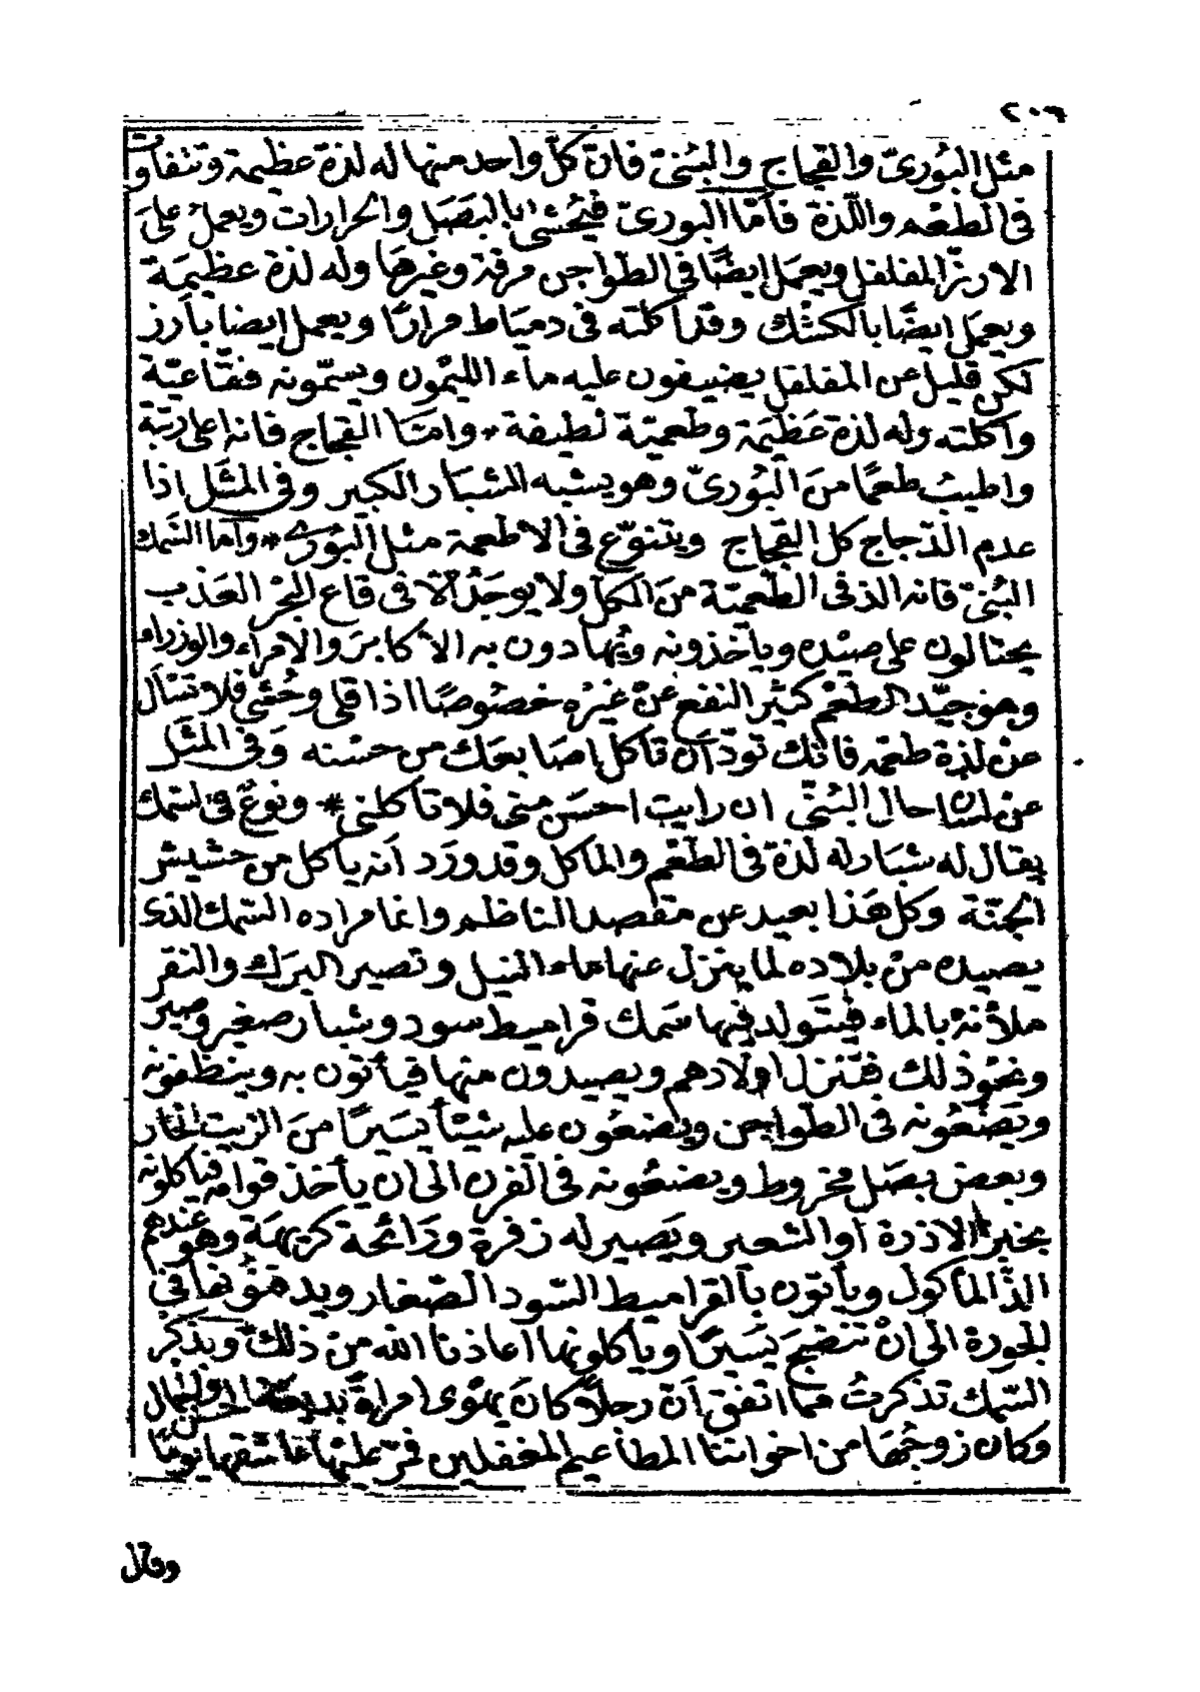 ٢٠٦
مثل البُورىّ والقجاج والبُنىّ فانّ كلّ واحد منها له لذة عظيمة وتتفاوت
فى الطعْم واللّذة فأمّا البورىّ فيُحْشى بالبَصَل والحرارات ويعملُ علىَ
الارزّ المفلفل ويعمَل ايضًا فى الطواجن مرقة وغيرهَا وله لذة عظيمَة
ويعمَل ايضًا بالكشْك وقد اكلته فى دميَاط مرارًا ويعمل ايضا بأرز
لكن قليل عن المفلفل يضيفون عليه ماء الليْمون ويسمّونه فقّاعيّة
واكلته وله لذة عَظيمَة وطعميّة لطيفة * وامّا القجاج فانه اعلى رتبة
واطيبُ طعمًا منَ البُورىّ وهو يشبه الشبَار الكبير وفى المثَل اذا
عدم الدّجاج كل القجاج ويتنوّع فى الاطعمة مثل البُورى * وأما السّمك
البُنىّ فانه الذ فى الطّعميّة منَ الكلّ ولا يوجَدُ الّا فى قاع البحْر العَذب
يحتالون على صيْده ويأخذونه ويُهادون به الاكابرَ والامراء والوزراء
وهو جيّد الطعْم كثير النفع عَنْ غيْره خصُوصًا اذا قلى وحُشى فلا تسْأل
عنْ لذة طعمْه فانّك تودّ أن تأكل اصابعك من حسْنه وَفى المثَل
عن لسَان حال البُنّى ان رايت احسَن منى فلا تأكلنى * ونوعٌ من السّمك
يقال له شبَار له لذة فى الطعْم والماكل وقد ورَد أنه ياكل من حشيش
الجنّة وكل هَذا بعيد عن مقصد الناظم وانما مراده السّمك الذى
يصيده منْ بلاده لما ينزل عنها ماء النيل وتصير البرَك والنقر
ملآنةً بالماء فيتَولد فيها سَمك قراميط سود وشبار صغير وصير
ونحْو ذلك فتنزل اولادهم ويصيدون منها فيأتون به وينظفونه
ويَضَعُونه فى الطّواجن ويضعُون عليه شيْئا يَسيَرًا منَ الزيت الحار
وبعض بصَل مخروط ويضعُونه فى الفرن الى ان يأخذ قوامه فياكلونه
بخبز الاذرة أو الشعير ويَصير له زفرة ورَائحة كريهَة وهو عندهم
الذّ المأكول ويأتون بالقراميط السّود الصّغار ويدهنُونها فى
للجورة الى انْ تنضجَ يَسيَرًا وياكلونها اعاذنا الله منْ ذلك ويذكر
السّمك تذكرتُ مما اتفق أنّ رجلًا كانَ يهْوى امراةً بديعة الحسْن والجمال
وكان زوجُهَا من اخواننا المطاعيم المغفلين فمرّ عليْها عاشقها يومًا
وقال